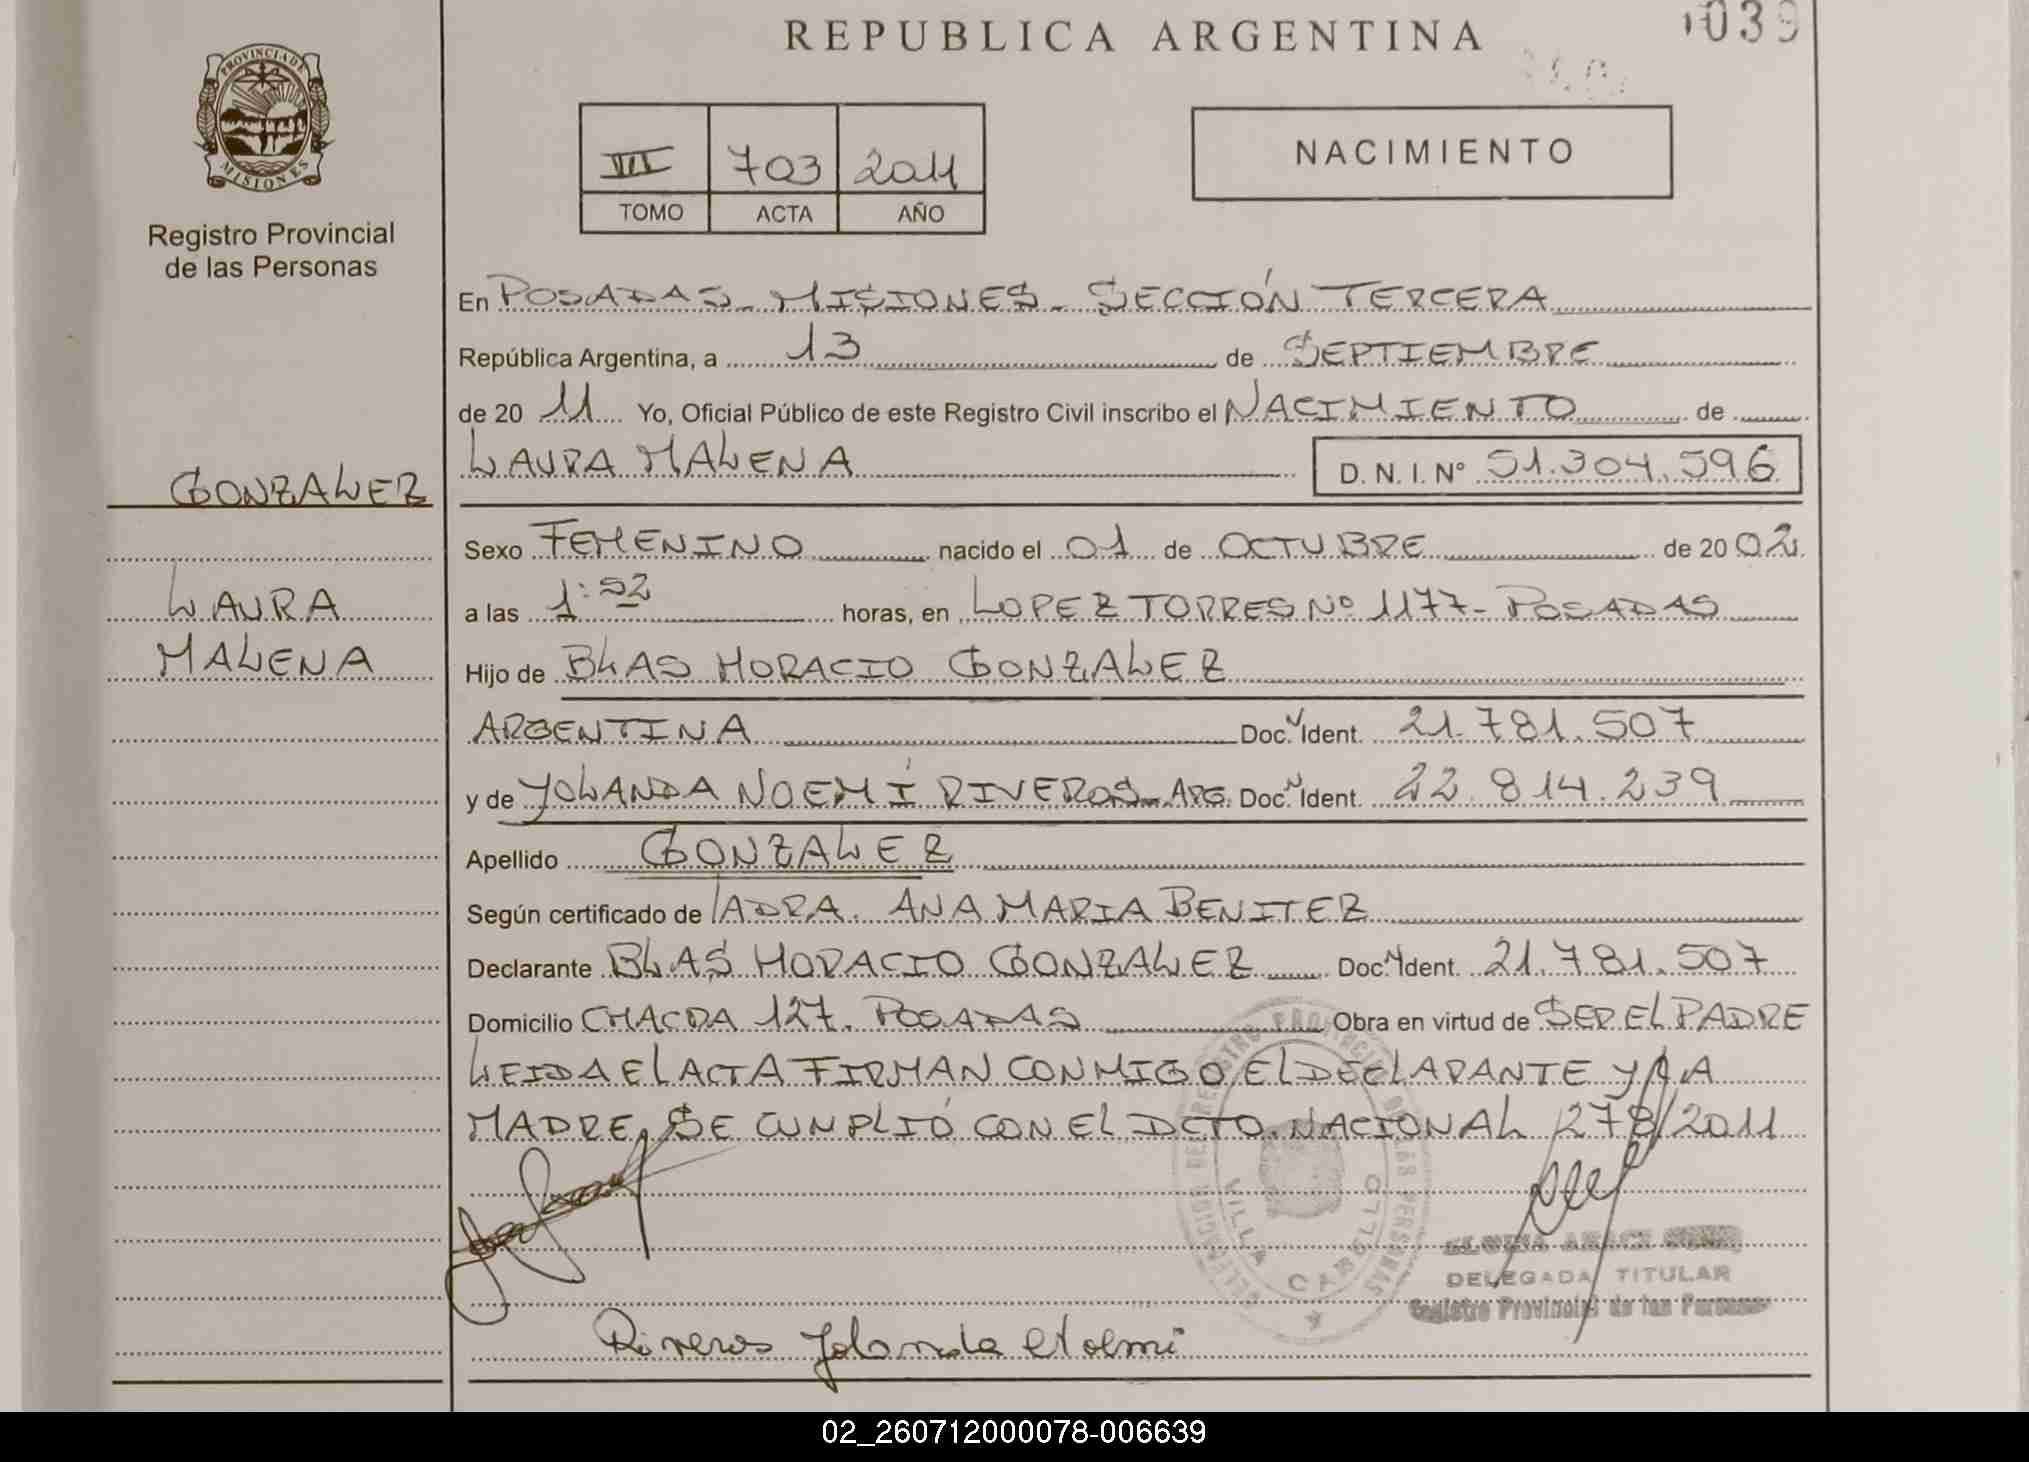 REPUBLICA ARGENTINA
1039
PROVINCIA DE
MISIONES
Registro Provincial
de las Personas
VII 703 2011
TOMO ACTA AÑO
NACIMIENTO
En POSADAS - MISIONES - SECCIÓN TERCERA
República Argentina, a 13 de SEPTIEMBRE
de 20 11 Yo, Oficial Público de este Registro Civil inscribo el NACIMIENTO de
LAURA MALENA D. N. I. Nº 51.304.596
GONZALEZ
LAURA
MALENA
Sexo FEMENINO nacido el 01 de OCTUBRE de 20 02
a las 1:52 horas, en LOPEZ TORRES Nº 1177 - POSADAS
Hijo de BLAS HORACIO GONZALEZ
ARGENTINA Doc. Ident. 21.781.507
y de YOLANDA NOEMÍ RIVEROS - ARG. Doc. Ident. 22.814.239
Apellido GONZALEZ
Según certificado de LA DRA. ANA MARIA BENITEZ
Declarante BLAS HORACIO GONZALEZ Doc. Ident. 21.781.507
Domicilio CHACRA 127. POSADAS Obra en virtud de SER EL PADRE
LEIDA EL ACTA FIRMAN CONMIGO EL DECLARANTE Y LA
MADRE, SE CUMPLIÓ CON EL DCTO. NACIONAL 278/2011
DELEGACION DEL REGISTRO PROVINCIAL DE LAS PERSONAS
VILLA CABELLO
DELEGADA TITULAR
Registro Provincial de las Personas
Riveros Yolanda Noemi
02_260712000078-006639